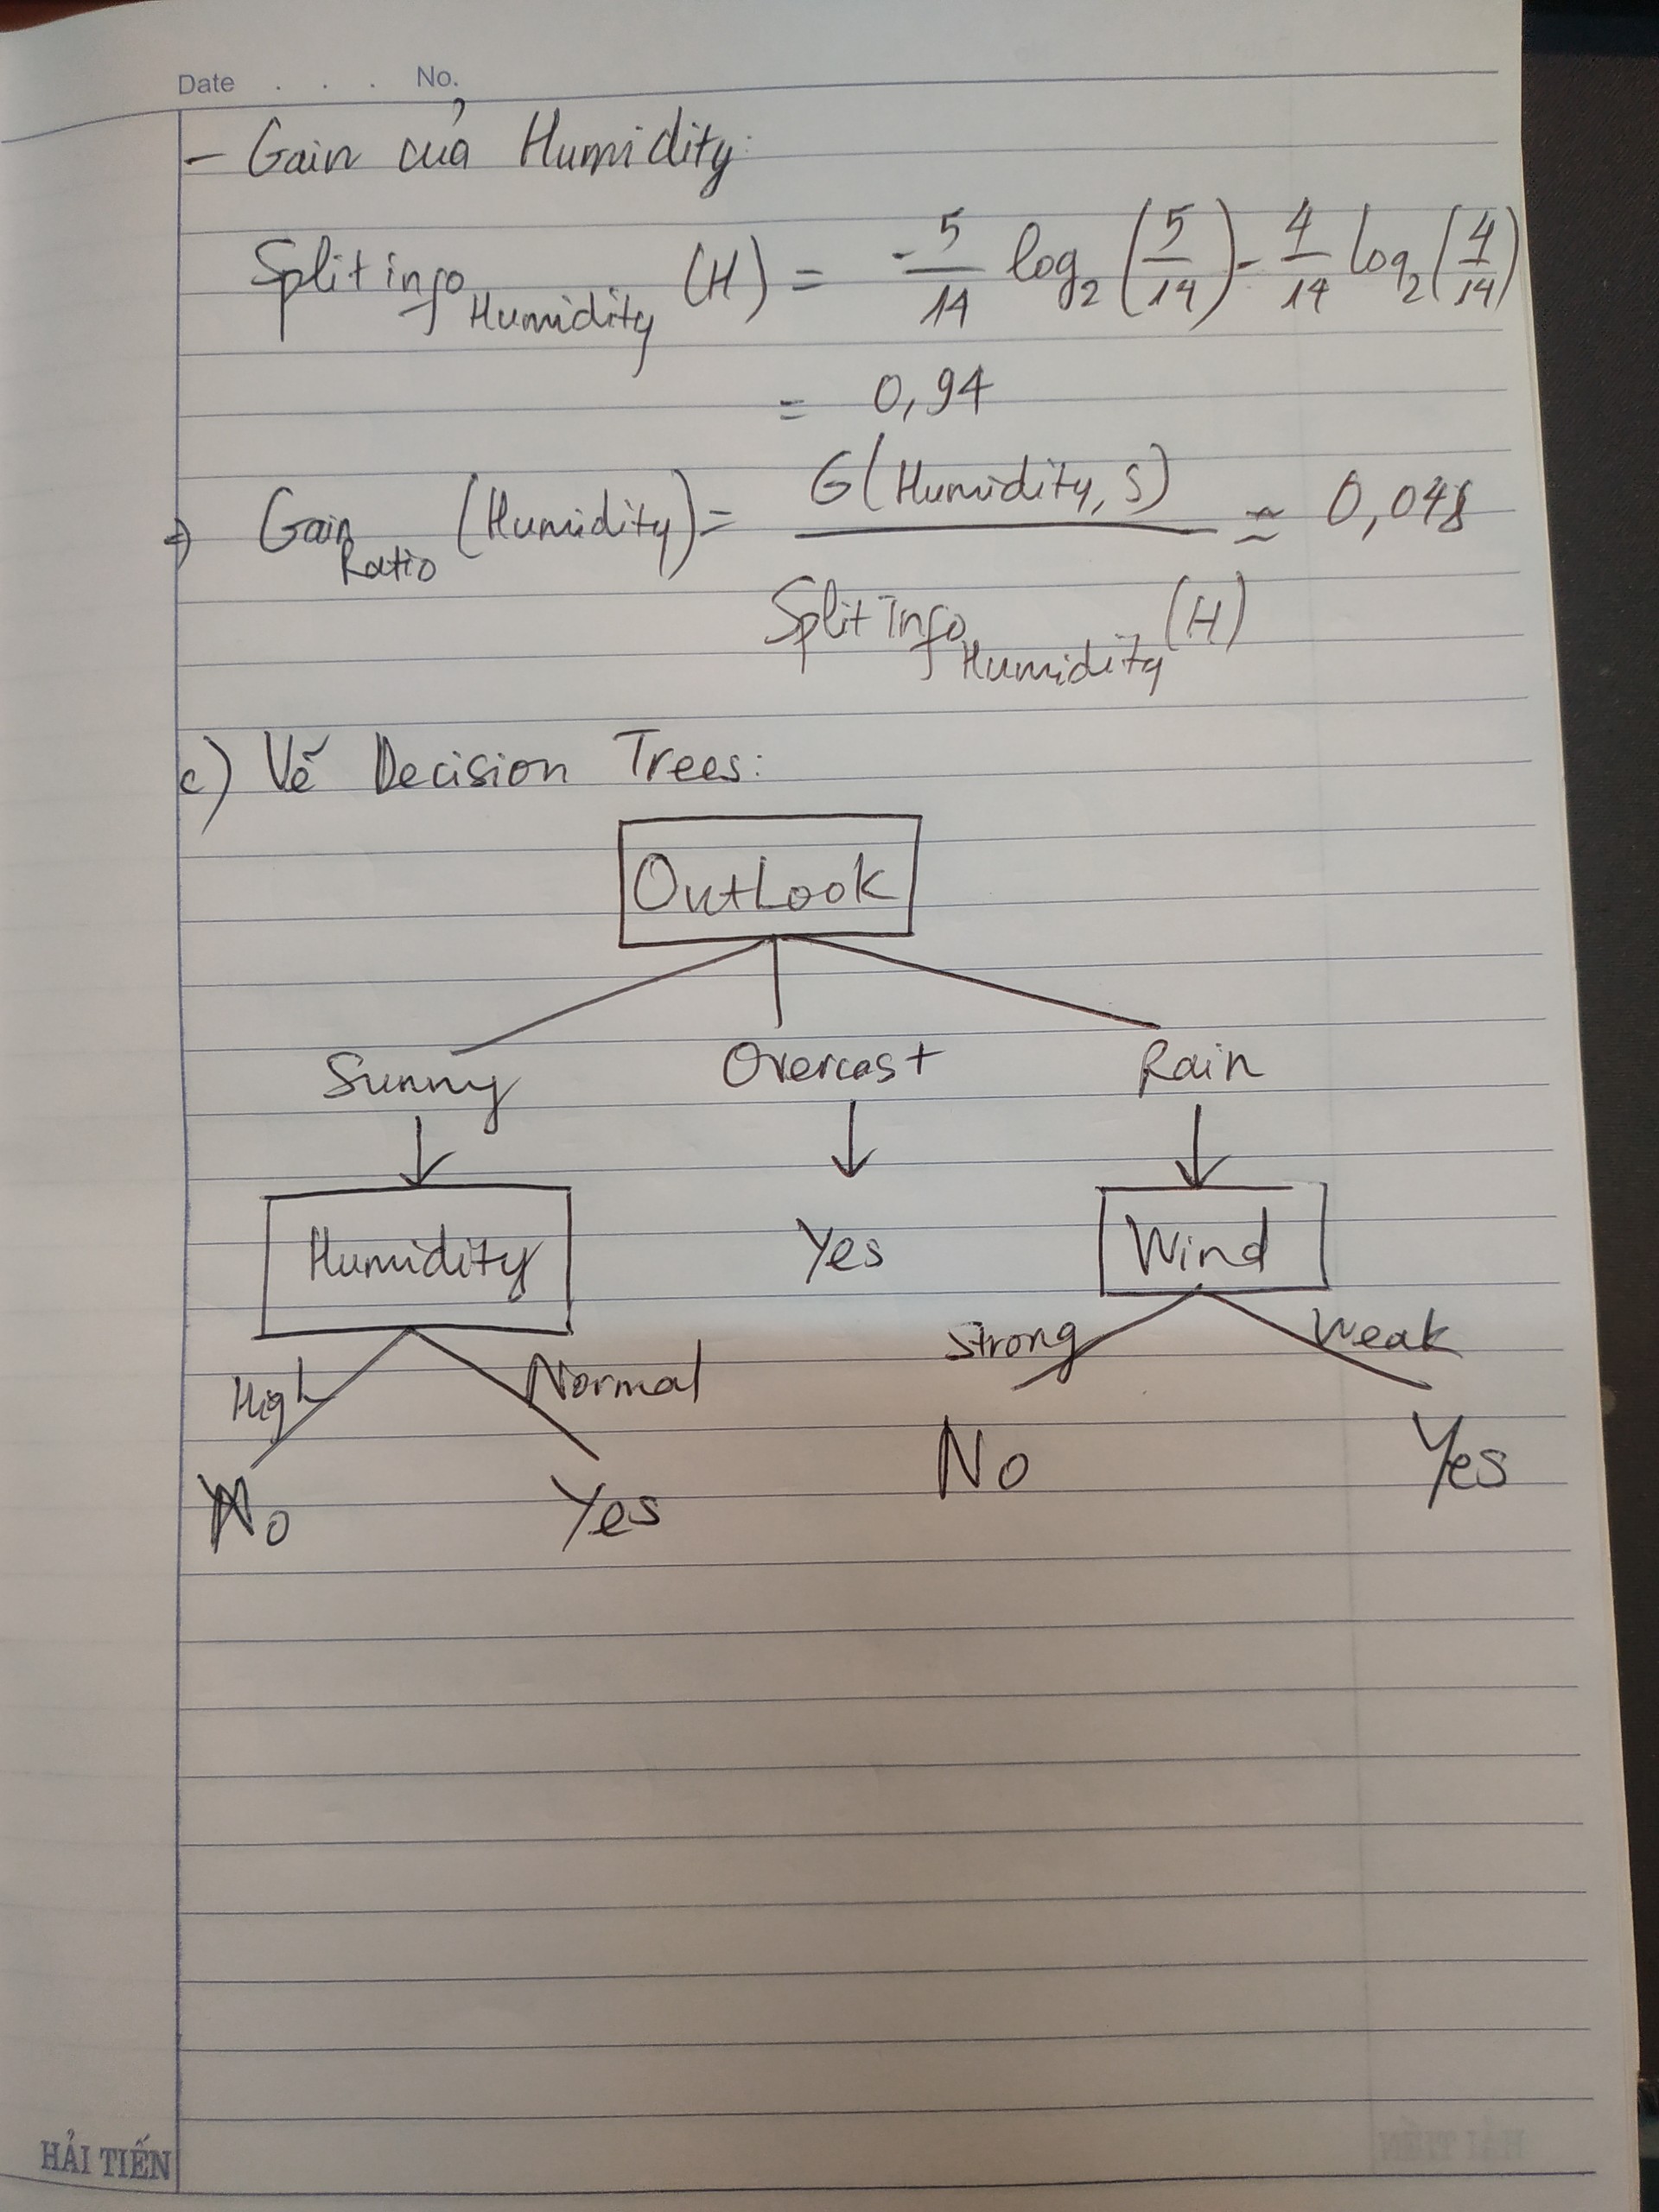 Date . . . No.
- Gain của Humidity:
Splitinfo Humidity (H) = -5/14 log2 (5/14) - 4/14 log2 (4/14)
= 0,94
⇒ Gain Ratio (Humidity) = G(Humidity, S) / Splitinfo Humidity (H) ≈ 0,048
c) Vẽ Decision Trees:
OutLook
Sunny Overcast Rain
Humidity Yes Wind
High Normal Strong Weak
No Yes No Yes
HẢI TIẾN